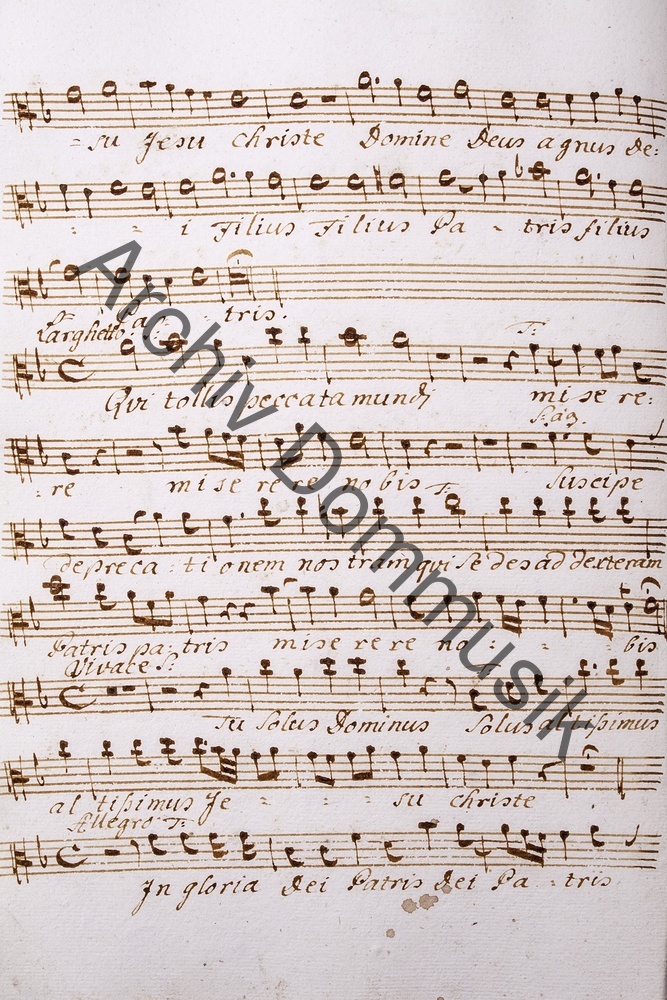 - su Jesu Christe Domine Deus agnus de:
- - i Filius Filius Pa - tris filius
Pa - - tris.
Larghetto S. T:
Qui tollis peccata mundi mi se re:
S: as.
: re mi se re re no bis T: suscipe
depreca : ti onem nostram qui se des ad dexteram
Patris pa - tris mise re re no - - - bis
Vivace S:
Tu solus Dominus solus altissimus
al tissimus Je - - - su christe
Allegro T:
In gloria Dei Patris Dei Pa - tris
Archiv Dommusik